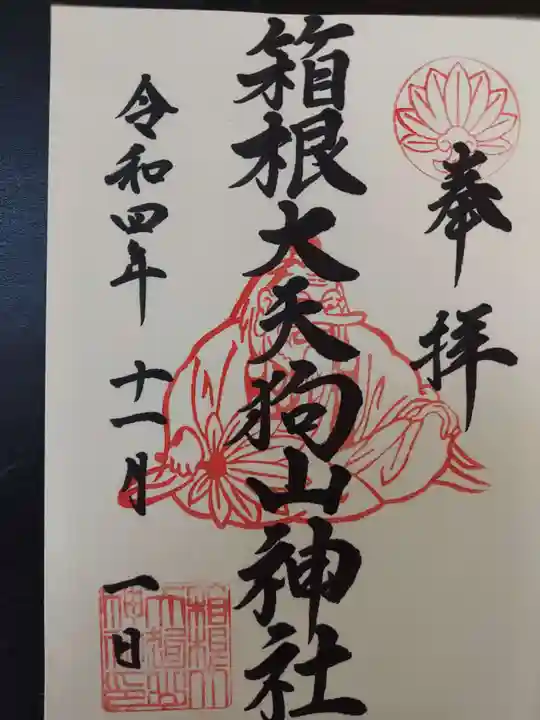 奉拝
箱根大天狗山神社
令和四年十一月一日